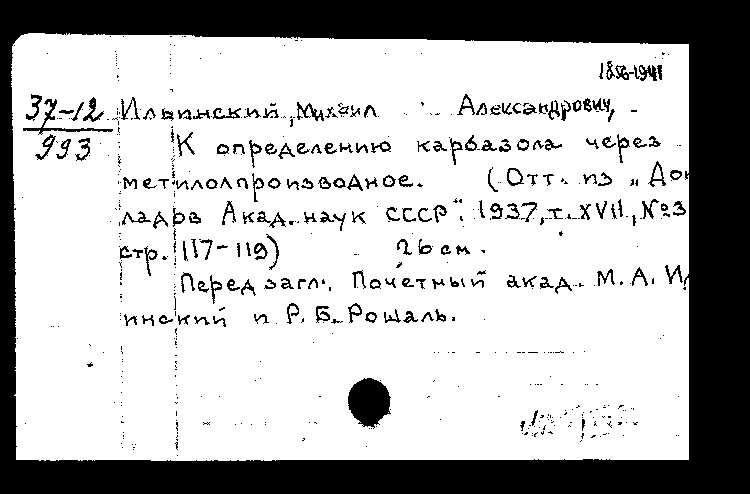 1856-1941
37-12
993
Ильинский, Михаил Александрович,
К определению карбазола через
метилолпроизводное. (Отт. из „Док
ладов Акад. наук СССР", 1937, т. XVII, № 3
стр. 117-119) 26 см.
Перед загл.: Почетный акад. М. А. Ил
инский и Р. Б. Рошаль.